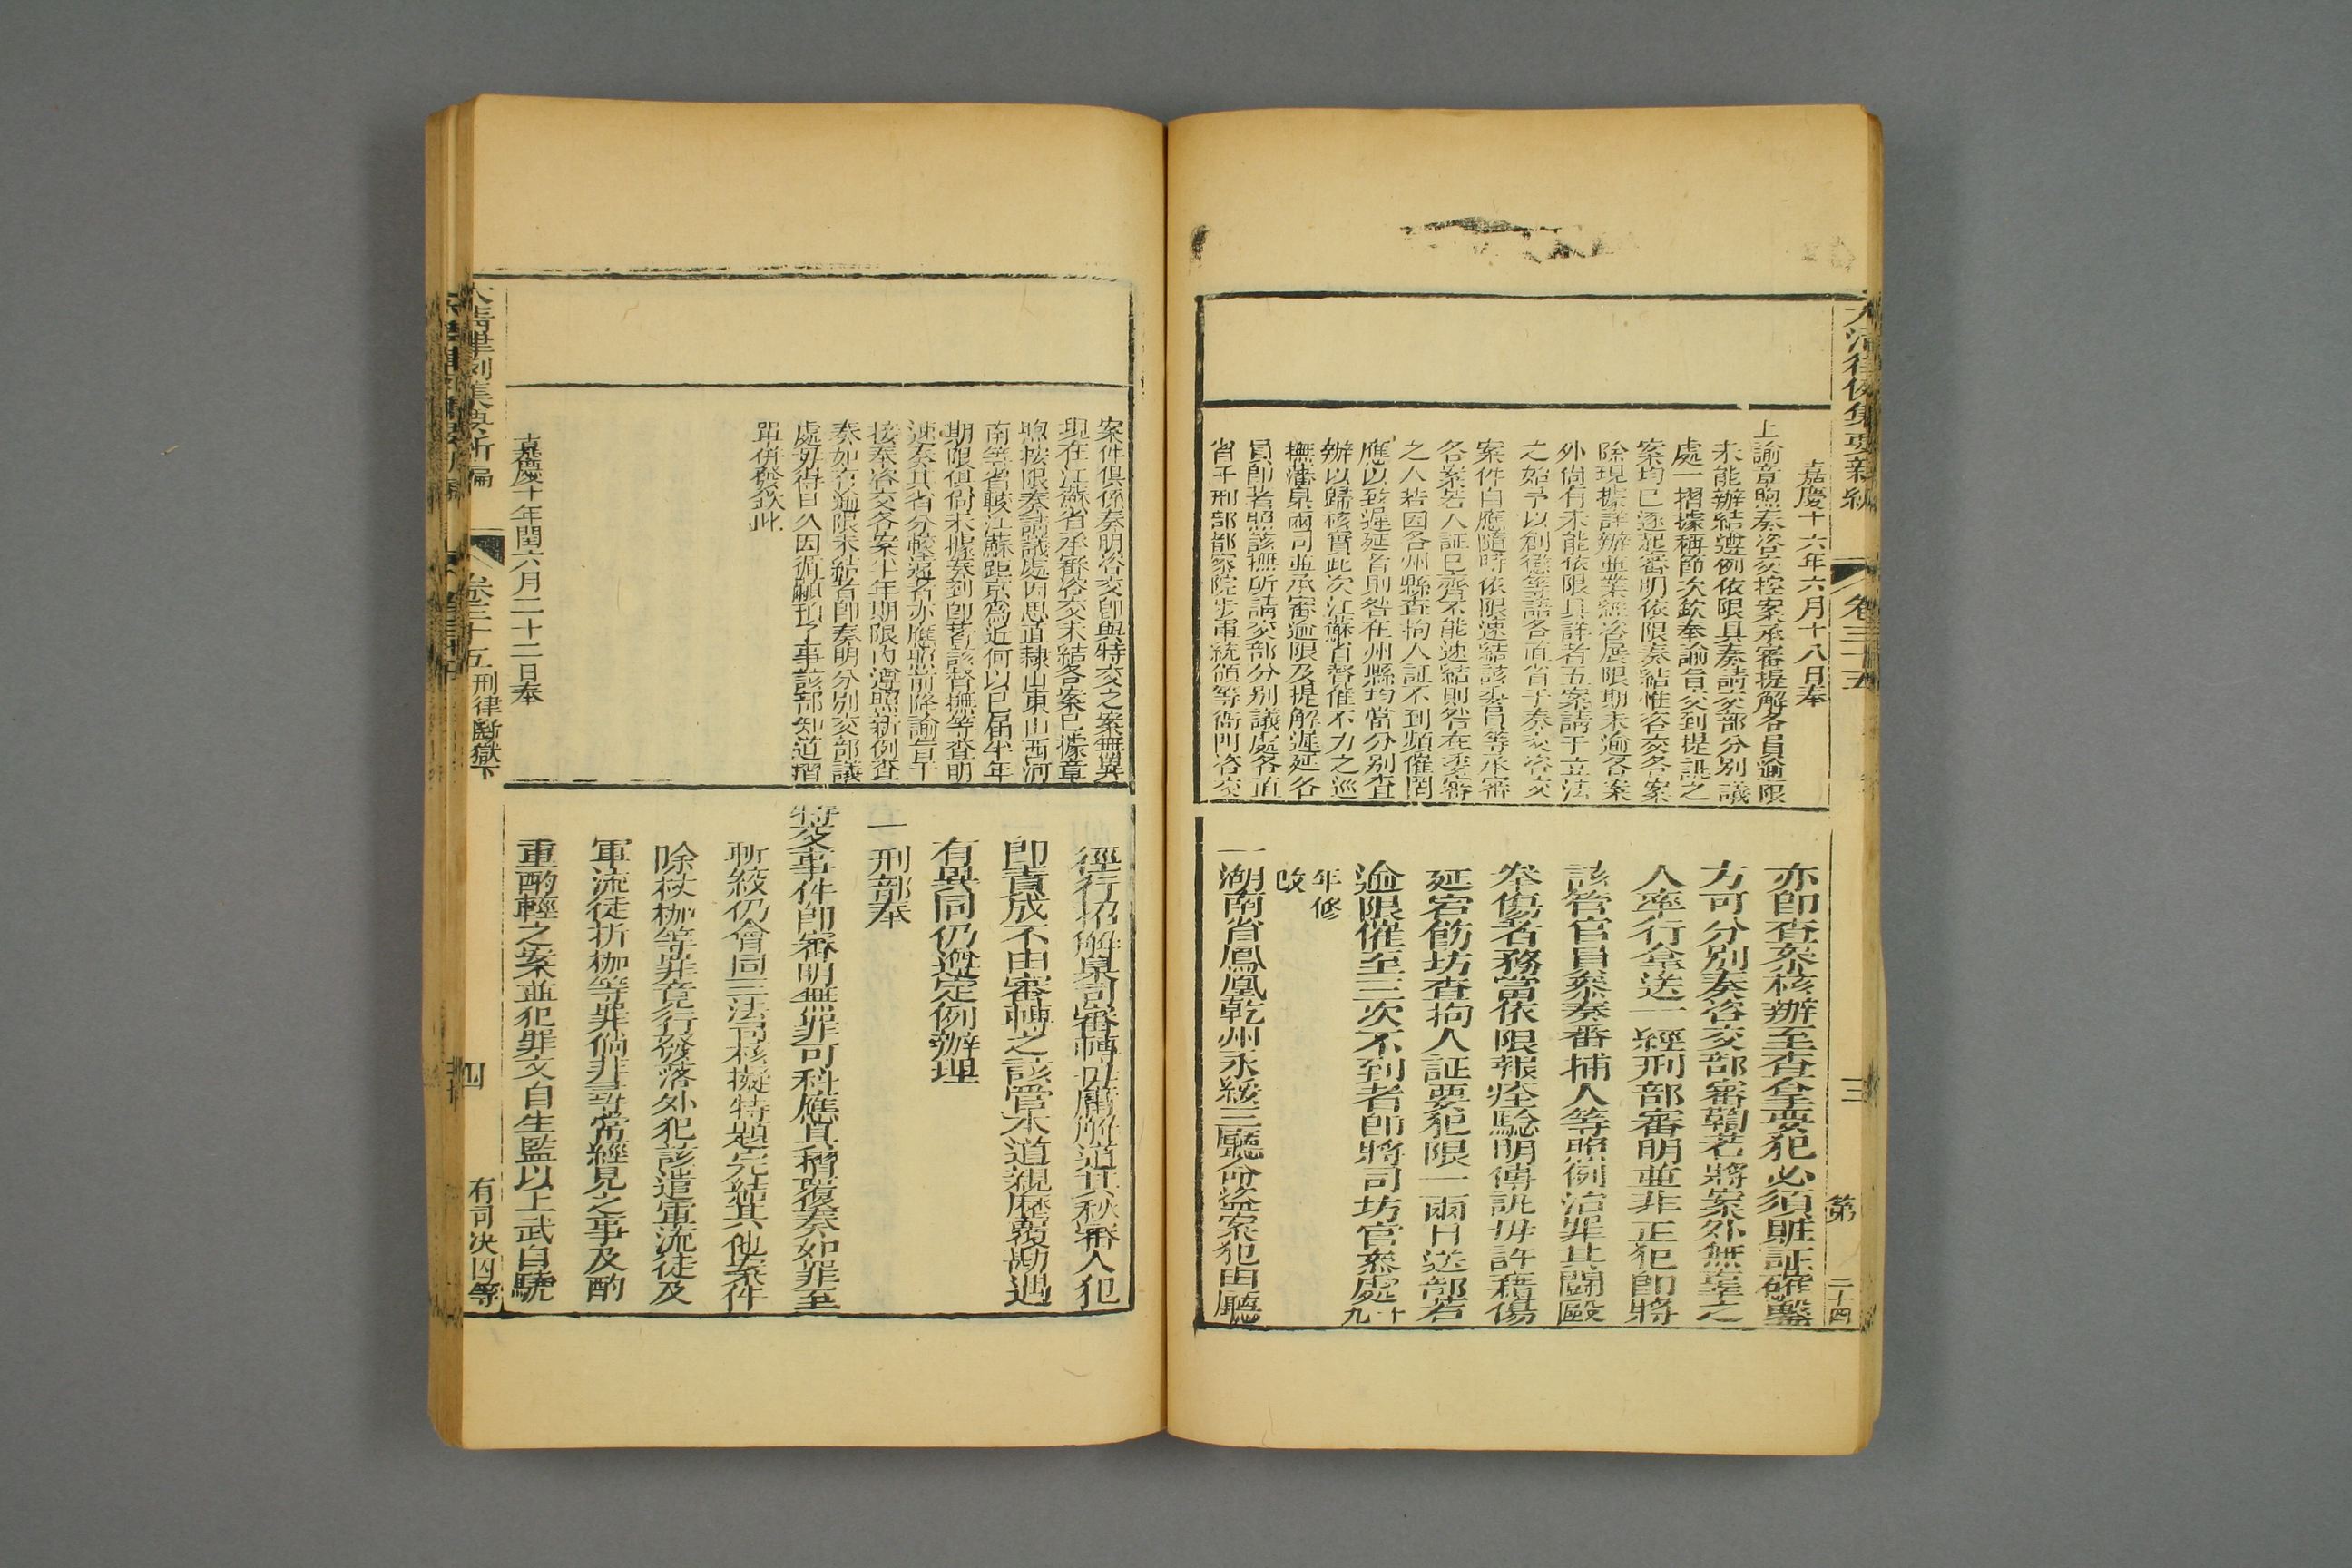 大清律例集要新編
卷三十五
三
第
二十四
嘉慶十六年六月十八日奉
上諭章煦奏咨交控案承審提解各員逾限
未能辦結遵例依限具奏請交部分別議
處一摺據稱節次欽奉諭旨交到提訊之
案均已逐起審明依限奏結惟咨交各案
除現據詳辦並業經咨展限期未逾各案
外尚有未能依限具詳者五案請于立法
之始予以創懲等語各直省于奏交咨交
案件自應隨時依限速結該委員等承審
各案若人証已齊不能速結則咎在委審
之人若因各州縣查拘人証不到頻催罔
應以致遲延者則咎在州縣均當分別查
辦以歸核實此次江蘇省督催不力之巡
撫藩臬兩司並承審逾限及提解遲延各
員卽著照該撫所請交部分別議處各直
省于刑部都察院步軍統領等衙門咨交
亦卽查叅核辦至查拿要犯必須贓証確鑿
方可分別奏咨交部審鞫若將案外無辜之
人率行拿送一經刑部審明並非正犯卽將
該管官員叅奏番捕人等照例治罪其鬭毆
拳傷者務當依限報痊驗明傳訊毋許藉傷
延宕飭坊查拘人証要犯限一兩日送部若
逾限催至三次不到者卽將司坊官叅處十九
年修
改
一湖南省鳳凰乾州永綏三廳命盜案犯由廳
案件俱係奏明咨交卽與特交之案無異
現在江蘇省承審咨交未結各案已據章
煦按限奏請議處因思直隸山東山西河
南等省較江蘇距京爲近何以已屆半年
期限俱尚未據奏到卽著該督撫等查明
速奏其省分較遠者亦應照前降諭旨于
接奉咨交各案半年期限內遵照新例查
奏如有逾限未結者卽奏明分別交部議
處毋得日久因循顢頇了事該部知道摺
單併發欽此
嘉慶十年閏六月二十二日奉
徑行招解臬司審轉毋庸解道其秋審人犯
卽責成不由審轉之該管本道親歷覆勘遇
有異同仍遵定例辦理
一刑部奉
特交事件卽審明無罪可科應具摺覆奏如罪至
斬絞仍會同三法司核擬特題完結其他案件
除杖枷等罪竟行發落外犯該遣軍流徒及
軍流徒折枷等罪倘非尋常經見之事及酌
重酌輕之案並犯罪文自生監以上武自驍
大清律例集要新編
卷三十五
刑律斷獄下
四
有司決囚等